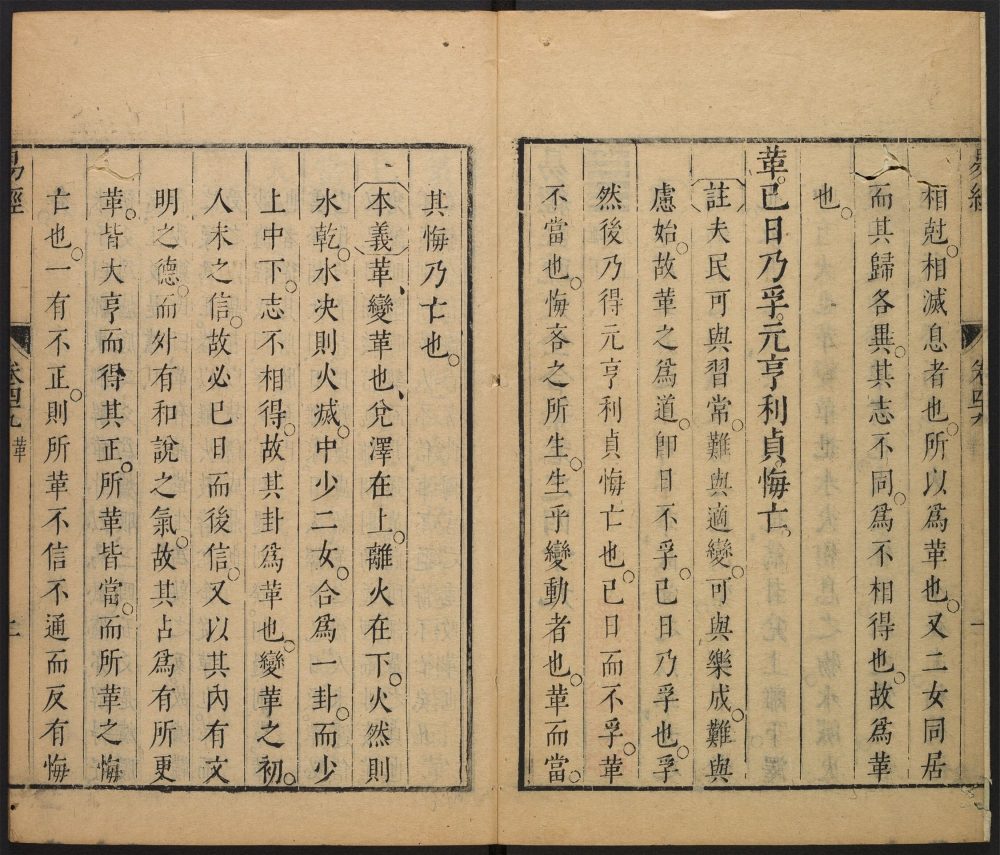 易經
相尅相滅息者也所以為革也又二女同居
而其歸各異其志不同為不相得也故為革
也
革已日乃孚元亨利貞悔亡
註夫民可與習常難與適變可與樂成難與
慮始故革之為道卽日不孚已日乃孚也孚
然後乃得元亨利貞悔亡也已日而不孚革
不當也悔吝之所生生乎變動者也革而當
其悔乃亡也
本義革變革也兌澤在上離火在下火然則
水乾水决則火滅中少二女合為一卦而少
上中下志不相得故其卦為革也變革之初
人未之信故必已日而後信又以其內有文
明之德而外有和說之氣故其占為有所更
革皆大亨而得其正所革皆當而所革之悔
亡也一有不正則所革不信不通而反有悔
易經
卷四九 革